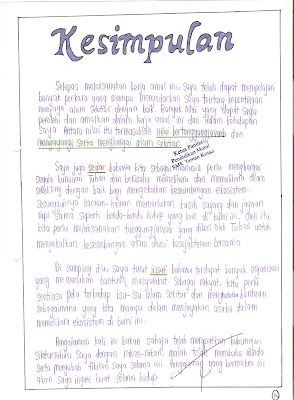 Kesimpulan
Selepas melaksanakan kerja amal ini, saya telah dapat mempelajari
banyak perkara yang mampu menyedarkan saya tentang kepentingan
menjaga alam sekitar dengan baik. Banyak nilai yang dapat saya
peroleh dan amalkan dalam kerja amal ini dan dalam kehidupan
saya. Antara nilai itu termasuklah nilai bertanggungjawab dan
menyayangi serta menghargai alam sekitar.
Ketua Panitia
Pendidikan Moral
SMK Taman
Saya juga sedar bahawa kita sebagai manusia perlu menghargai
segala kurniaan Tuhan dan berusaha memelihara dan memulihara alam
sekeliling dengan baik bagi mengekalkan keseimbangan ekosistem.
Sesungguhnya haiwan-haiwan memerlukan kasih sayang dan jagaan
rapi sama seperti benda-benda hidup yang lain di bumi ini. Oleh itu
kita perlu melaksanakan tanggungjawab yang diberi oleh Tuhan untuk
mengekalkan keseimbangan alam demi kesejahteraan bersama.
Di samping itu, saya turut insaf bahawa terdapat banyak organisasi
yang memerlukan bantuan masyarakat. Sebagai rakyat, kita perlu
sentiasa peka terhadap isu-isu alam sekitar dan menghulurkan bantuan
sebagaimana yang kita mampu dalam menjayakan usaha dalam
memelihara ekosistem di bumi ini.
Pengalaman kali ini bukan sahaja telah merapatkan hubungan
silaturahim saya dengan rakan-rakan, malah telah membuka minda
serta mengubah fikiran saya selama ini. Pengalaman yang bermakna ini
akan saya ingat buat selama hidup.